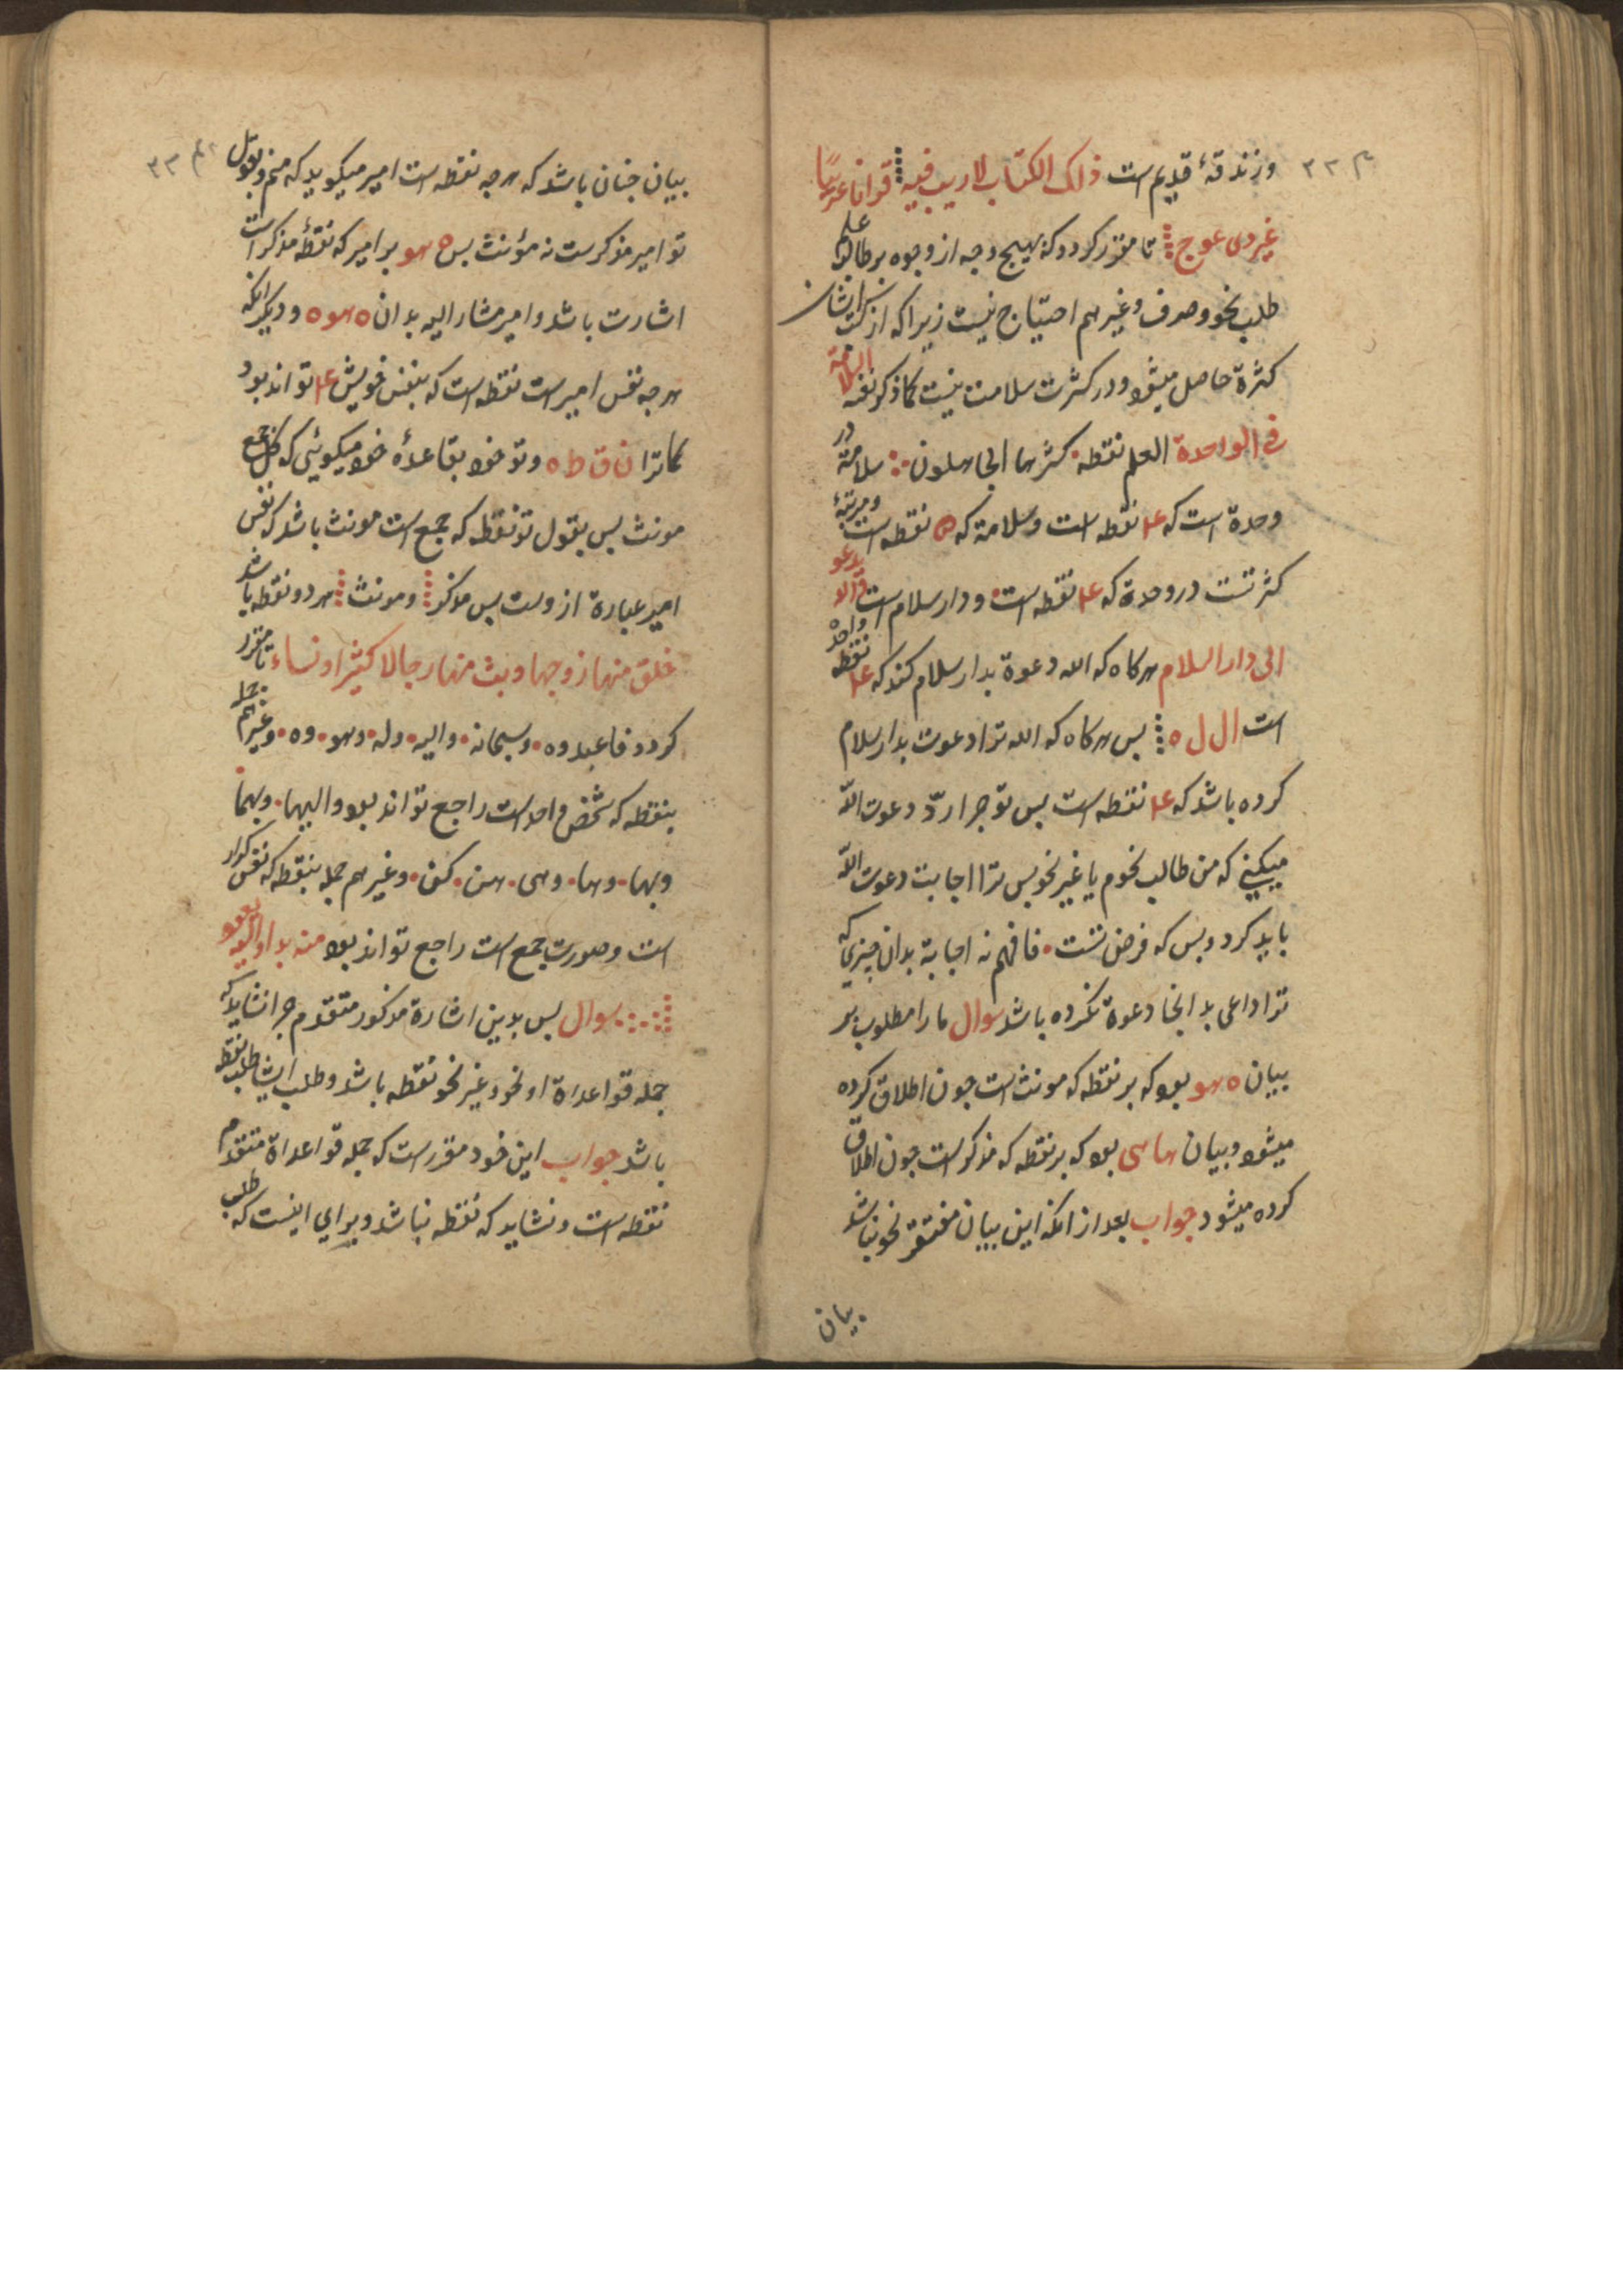 وزندقهٔ قدیم است ذلک الکتاب لا ریب فیه قرانا عربیّا
غیر ذی عوج تا مقرّر کردد که بهیچ وجه از وجوه بر طالب علم
طلب نحو وصرف وغیرهم احتیاج نیست زیرا که از کتب ایشان
کثرة حاصل میشود ودر کثرت سلامت نیست کما ذکر نفسه السلامة
فی الواحدة العلم نقطة کثرها الجاهلون سلامة در
وحدة است که ۴ نقطه است وسلامة که ۵ نقطه است ومرتبهٔ
کثرتست در وحدة که ۴ نقطه است ودار سلام است والله یدعو
الی دار السلام هرکاه که الله دعوة بدار سلام کند که ۴ نقطه واحده
است ال ل ه بس هرکاه که الله ترا دعوت بدار سلام
کرده باشد که ۴ نقطه است بس تو چرا ردّ دعوت اللّه
میکنی که من طالب نحوم یا غیر نحو بس ترا اجابت دعوت اللّه
باید کرد وبس که فرض تست فافهم نه اجابة بدان چیزی که
ترا داعی بدانجا دعوة نکرده باشد سوال ما را مطلوب بر
بیان ه هو بود که بر نقطه که مونث است جون اطلاق کرده
میشود وبیان ها هی بود که بر نقطه که مذکر است جون اطلاق
کرده میشود جواب بعد از انکه این بیان مفتقر نحو نباشد
بیان
۳۳
بیان جنان باشد که هرجه نقطه است امیر میکوید که منم وبقول
تو امیر مذکرست نه مؤنث بس ه هو بر امیر که نقطهٔ مذکر است
اشارت باشد وامیر مشار الیه بدان ه هو ه ودیکر انکه
هرجه نفس امیر است نقطه است که بنفس خویش ۴ تواند بود
کما ترا ن ق ط ه وتو خود بقاعدهٔ خود میکوئی که کل جمع
مونث بس بقول تو نقطه که جمع است مونث باشد که نفس
امیر عبارة از وست بس مذکر ومونث هر دو نقطه باشد
خلق منها زوجها وبث منهما رجالا کثیرا ونساء تا مقرر
کردد فاعبدوه وسبحانه والیه وله وهو وه وغیرهم جمله
بنقطه که شخص واحد است راجع تواند بود والیهما وبهما
وبها وها وهی هن کن وغیرهم جمله بنقطه که نفس کرار
است وصورت جمع است راجع تواند بود منه بدا والیه یعود
سوال بس بدین اشارة مذکور متقدم چرا نشاید که
جمله قواعد اداة او نحو وغیر نحو نقطه باشد وطلب ایشان طلب نقطه
باشد جواب این خود مقرر است که جمله قواعد اداة متقدم
نقطه است ونشاید که نقطه نباشد وبرای اینست که طلب